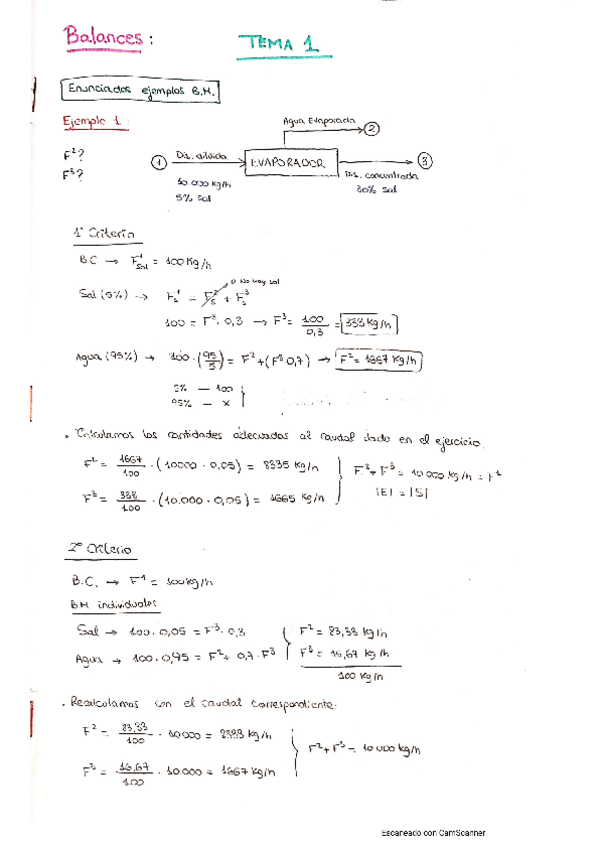 Balances: TEMA 1
Enunciados ejemplos B.M.
Ejemplo 1:
F²?
F³?
Agua Evaporada 2
1 Dis. diluida EVAPORADOR 3
10 000 kg/h
5% sal
Dis. concentrada
30% sal
1º Criterio
B.C → F¹sal = 100 kg/h
0 No hay sal
Sal (5%) → F¹s = F²s + F³s
100 = F³ · 0,3 → F³ = 100/0,3 = 333 kg/h
Agua (95%) → 100 · (95/5) = F² + (F³ 0,7) → F² = 1667 kg/h
5% — 100
95% — x
• Calculamos las cantidades adecuadas al caudal dado en el ejercicio.
F² = 1667/100 · (10000 · 0,05) = 8335 kg/h
F³ = 333/100 · (10.000 · 0,05) = 1665 kg/h
F² + F³ = 10 000 kg/h = F¹
|E| = |S|
2º Criterio
B.C. → F¹ = 100 kg/h
B.M. individuales
Sal → 100 · 0,05 = F³ · 0,3
Agua → 100 · 0,95 = F² + 0,7 · F³
F² = 83,33 kg/h
F³ = 16,67 kg/h
100 kg/h
• Recalculamos con el caudal correspondiente.
F² = 83,33/100 · 10000 = 8333 kg/h
F³ = 16,67/100 · 10.000 = 1667 kg/h
F² + F³ = 10 000 kg/h
Escaneado con CamScanner